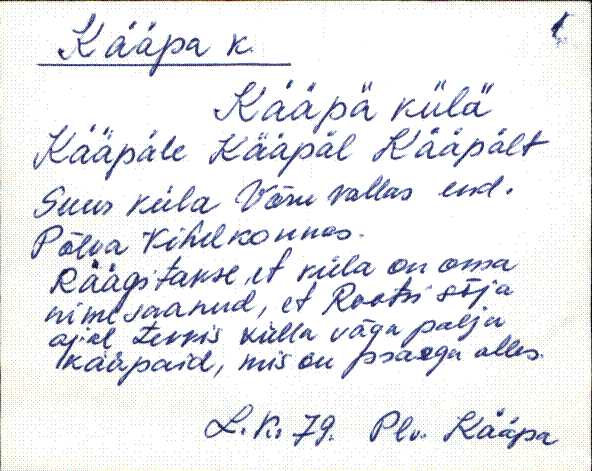 1
Kääpa k.
Kääpä külä
Kääpäle Kääpäl Kääpält
Suur küla Võru vallas end.
Põlva kihelkonnas.
Räägitakse, et küla on oma
nime saanud, et Rootsi sõja
ajal tekkis külla väga palju
kääpaid, mis on praegu alles.
L. K. 79. Plv. Kääpa